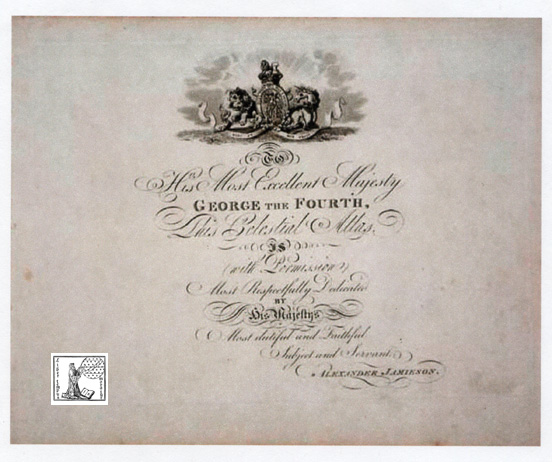 TO
His Most Excellent Majesty
GEORGE THE FOURTH,
This Celestial Atlas,
IS
(with Permission)
Most Respectfully Dedicated
BY
His Majestys
Most dutiful and Faithful
Subject and Servant,
ALEXANDER JAMIESON.